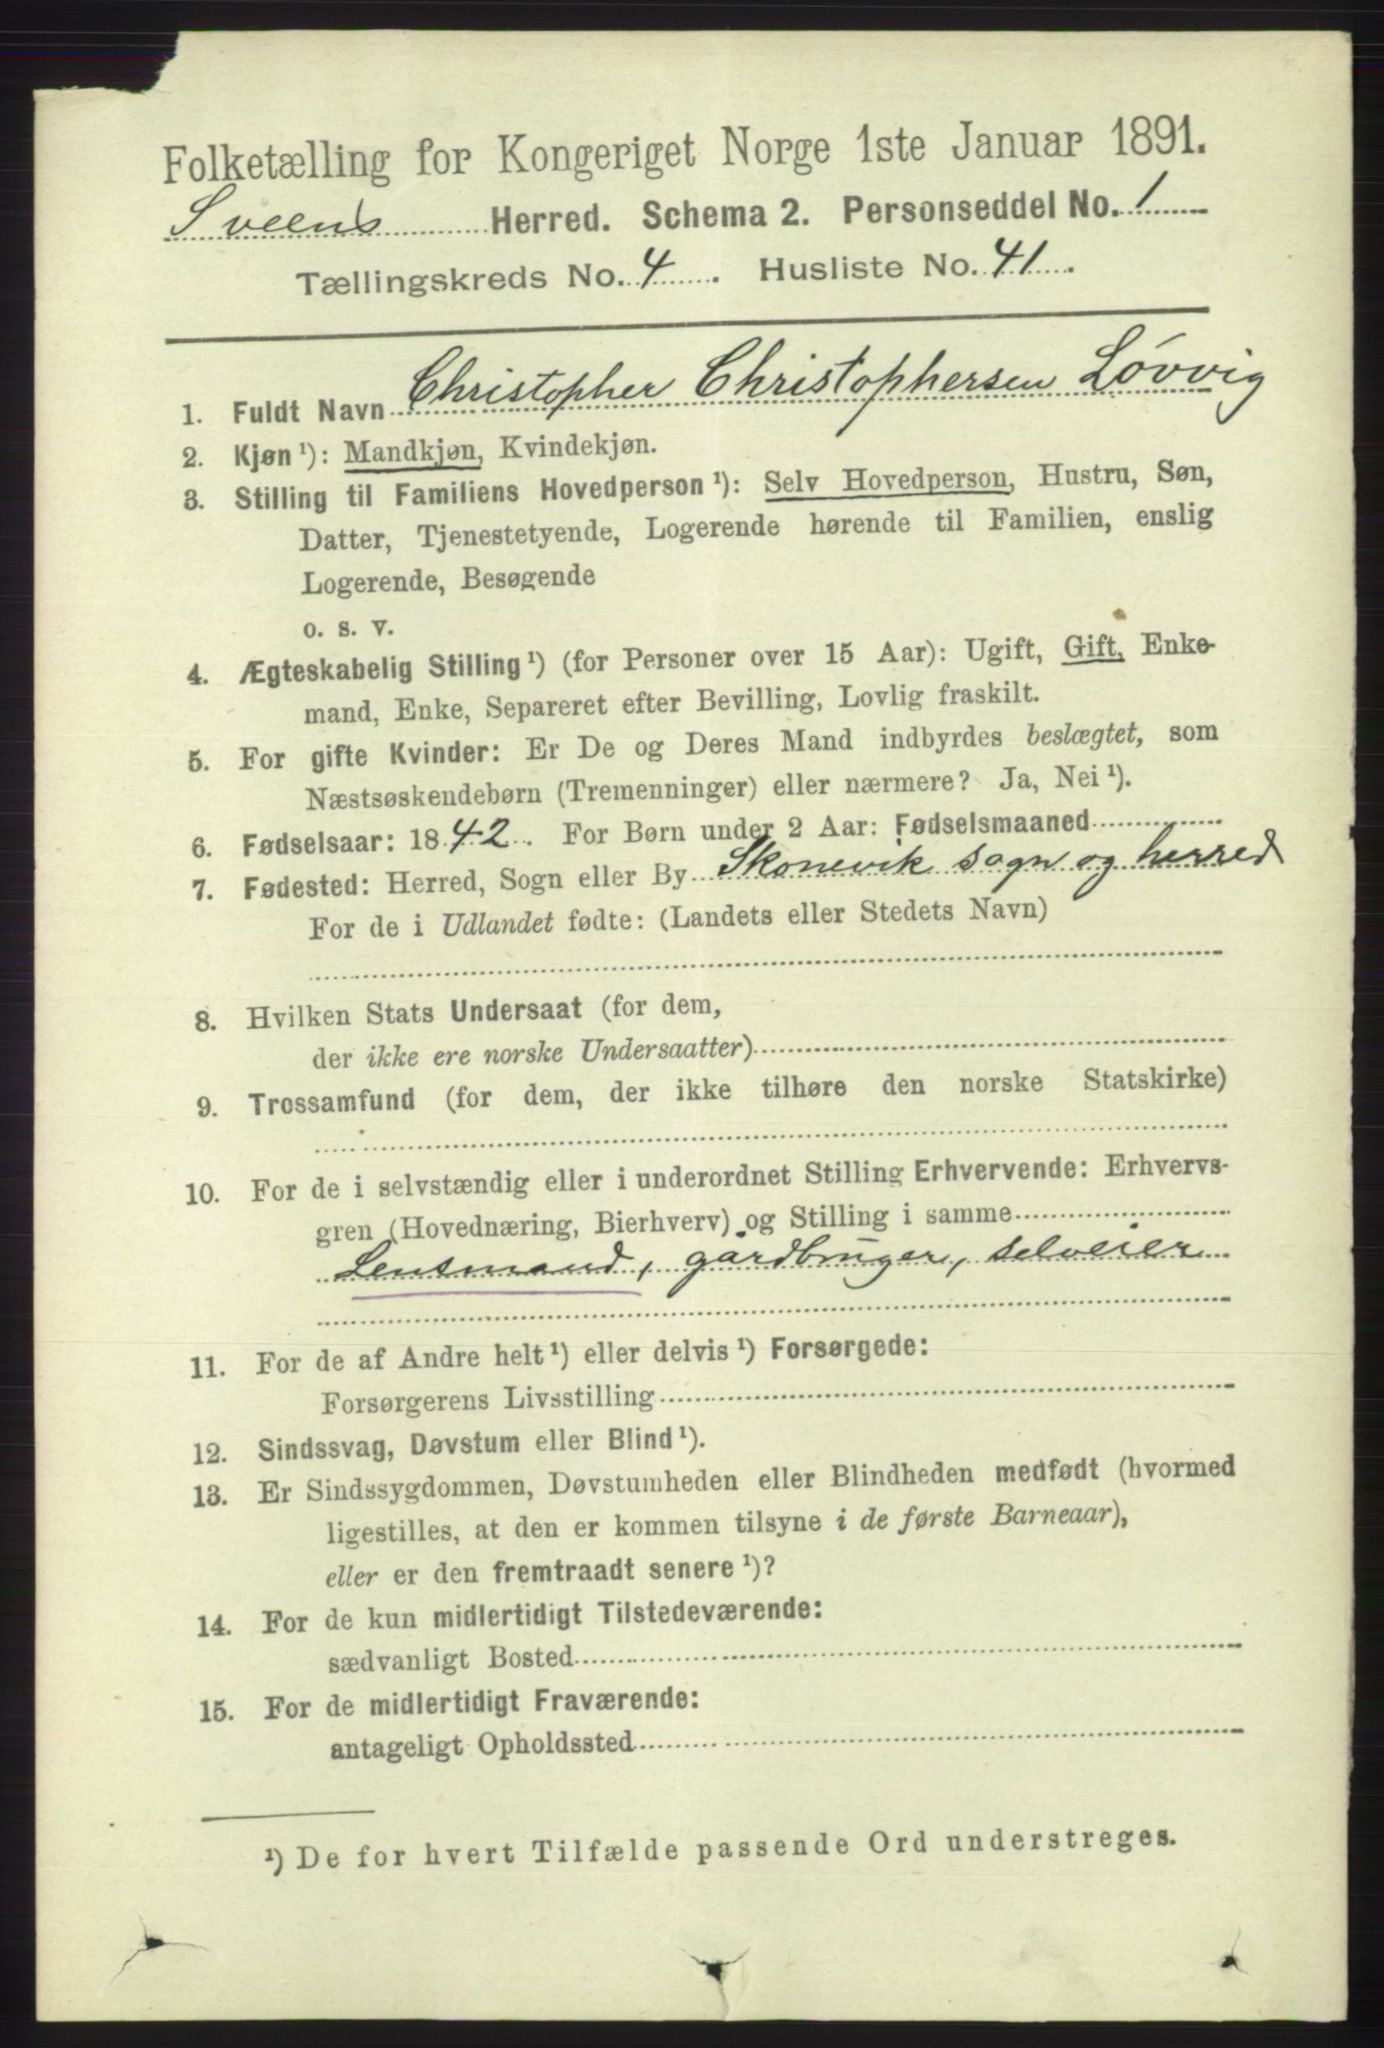 Folketælling for Kongeriget Norge 1ste Januar 1891.
Sveens Herred. Schema 2. Personseddel No. 1
Tællingskreds No. 4. Husliste No. 41.
1. Fuldt Navn Christopher Christophersen Løvvig
2. Kjøn¹): Mandkjøn, Kvindekjøn.
3. Stilling til Familiens Hovedperson¹): Selv Hovedperson, Hustru, Søn,
Datter, Tjenestetyende, Logerende hørende til Familien, enslig
Logerende, Besøgende
o. s. v.
4. Ægteskabelig Stilling¹) (for Personer over 15 Aar): Ugift, Gift, Enke-
mand, Enke, Separeret efter Bevilling, Lovlig fraskilt.
5. For gifte Kvinder: Er De og Deres Mand indbyrdes beslægtet, som
Næstsøskendebørn (Tremenninger) eller nærmere? Ja, Nei¹).
6. Fødselsaar: 1842. For Børn under 2 Aar: Fødselsmaaned
7. Fødested: Herred, Sogn eller By Skonevik sogn og herred
For de i Udlandet fødte: (Landets eller Stedets Navn)
8. Hvilken Stats Undersaat (for dem,
der ikke ere norske Undersaatter)
9. Trossamfund (for dem, der ikke tilhøre den norske Statskirke)
10. For de i selvstændig eller i underordnet Stilling Erhvervende: Erhvervs-
gren (Hovednæring, Bierhverv) og Stilling i samme
Lensmand, gårdbruger, selveier
11. For de af Andre helt¹) eller delvis¹) Forsørgede:
Forsørgerens Livsstilling
12. Sindssvag, Døvstum eller Blind¹).
13. Er Sindssygdommen, Døvstumheden eller Blindheden medfødt (hvormed
ligestilles, at den er kommen tilsyne i de første Barneaar),
eller er den fremtraadt senere¹)?
14. For de kun midlertidigt Tilstedeværende:
sædvanligt Bosted
15. For de midlertidigt Fraværende:
antageligt Opholdssted
¹) De for hvert Tilfælde passende Ord understreges.